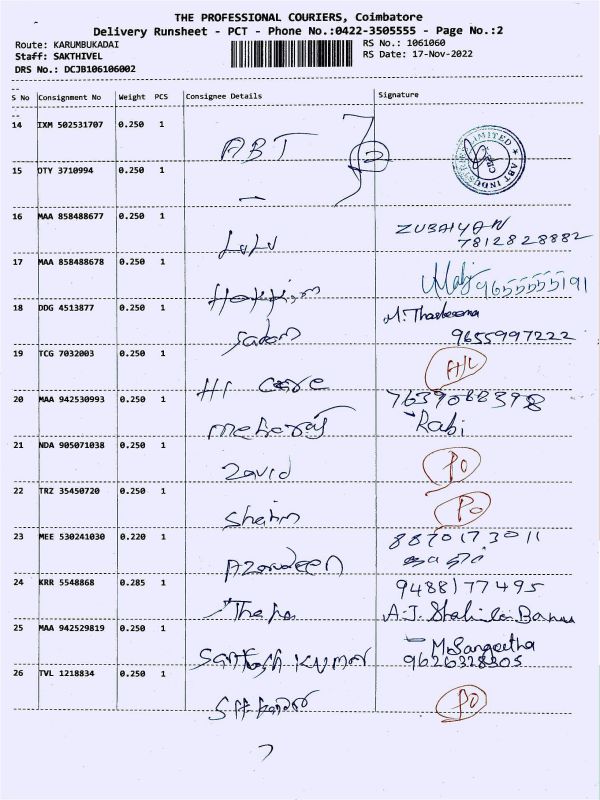 THE PROFESSIONAL COURIERS, Coimbatore
Delivery Runsheet - PCT - Phone No.:0422-3505555 - Page No.:2
Route: KARUMBUKADAI RS No.: 1061060
Staff: SAKTHIVEL RS Date: 17-Nov-2022
DRS No.: DCJB106106002
S No Consignment No Weight PCS Consignee Details Signature
14 IXM 502531707 0.250 1 ABT
15 OTY 3710994 0.250 1
16 MAA 858488677 0.250 1 ZUBAIYAN
LuLu 7812828882
17 MAA 858488678 0.250 1 9655555191
Hakkim
18 DDG 4513877 0.250 1
Sadam 9655997222
19 TCG 7032003 0.250 1 H/C
HI care
20 MAA 942530993 0.250 1 7639068398
Meharaj Rabi
21 NDA 905071038 0.250 1 PO
Zavid
22 TRZ 35450720 0.250 1 PO
Shahim
23 MEE 530241030 0.220 1 8870173011
Azarudeen
24 KRR 5548868 0.285 1 9488177495
Thaha A.J. Shahila Banu
25 MAA 942529819 0.250 1 M. Sangeetha
Santhosh Kumar 9626328305
26 TVL 1218834 0.250 1 PO